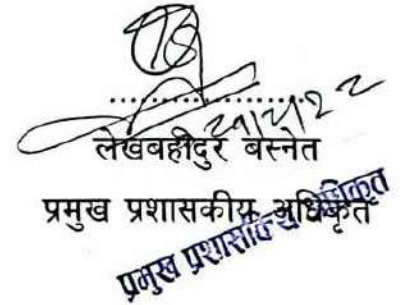 ....................
लेखबहादुर बस्नेत
प्रमुख प्रशासकीय अधिकृत
प्रमुख प्रशासकीय अधिकृत